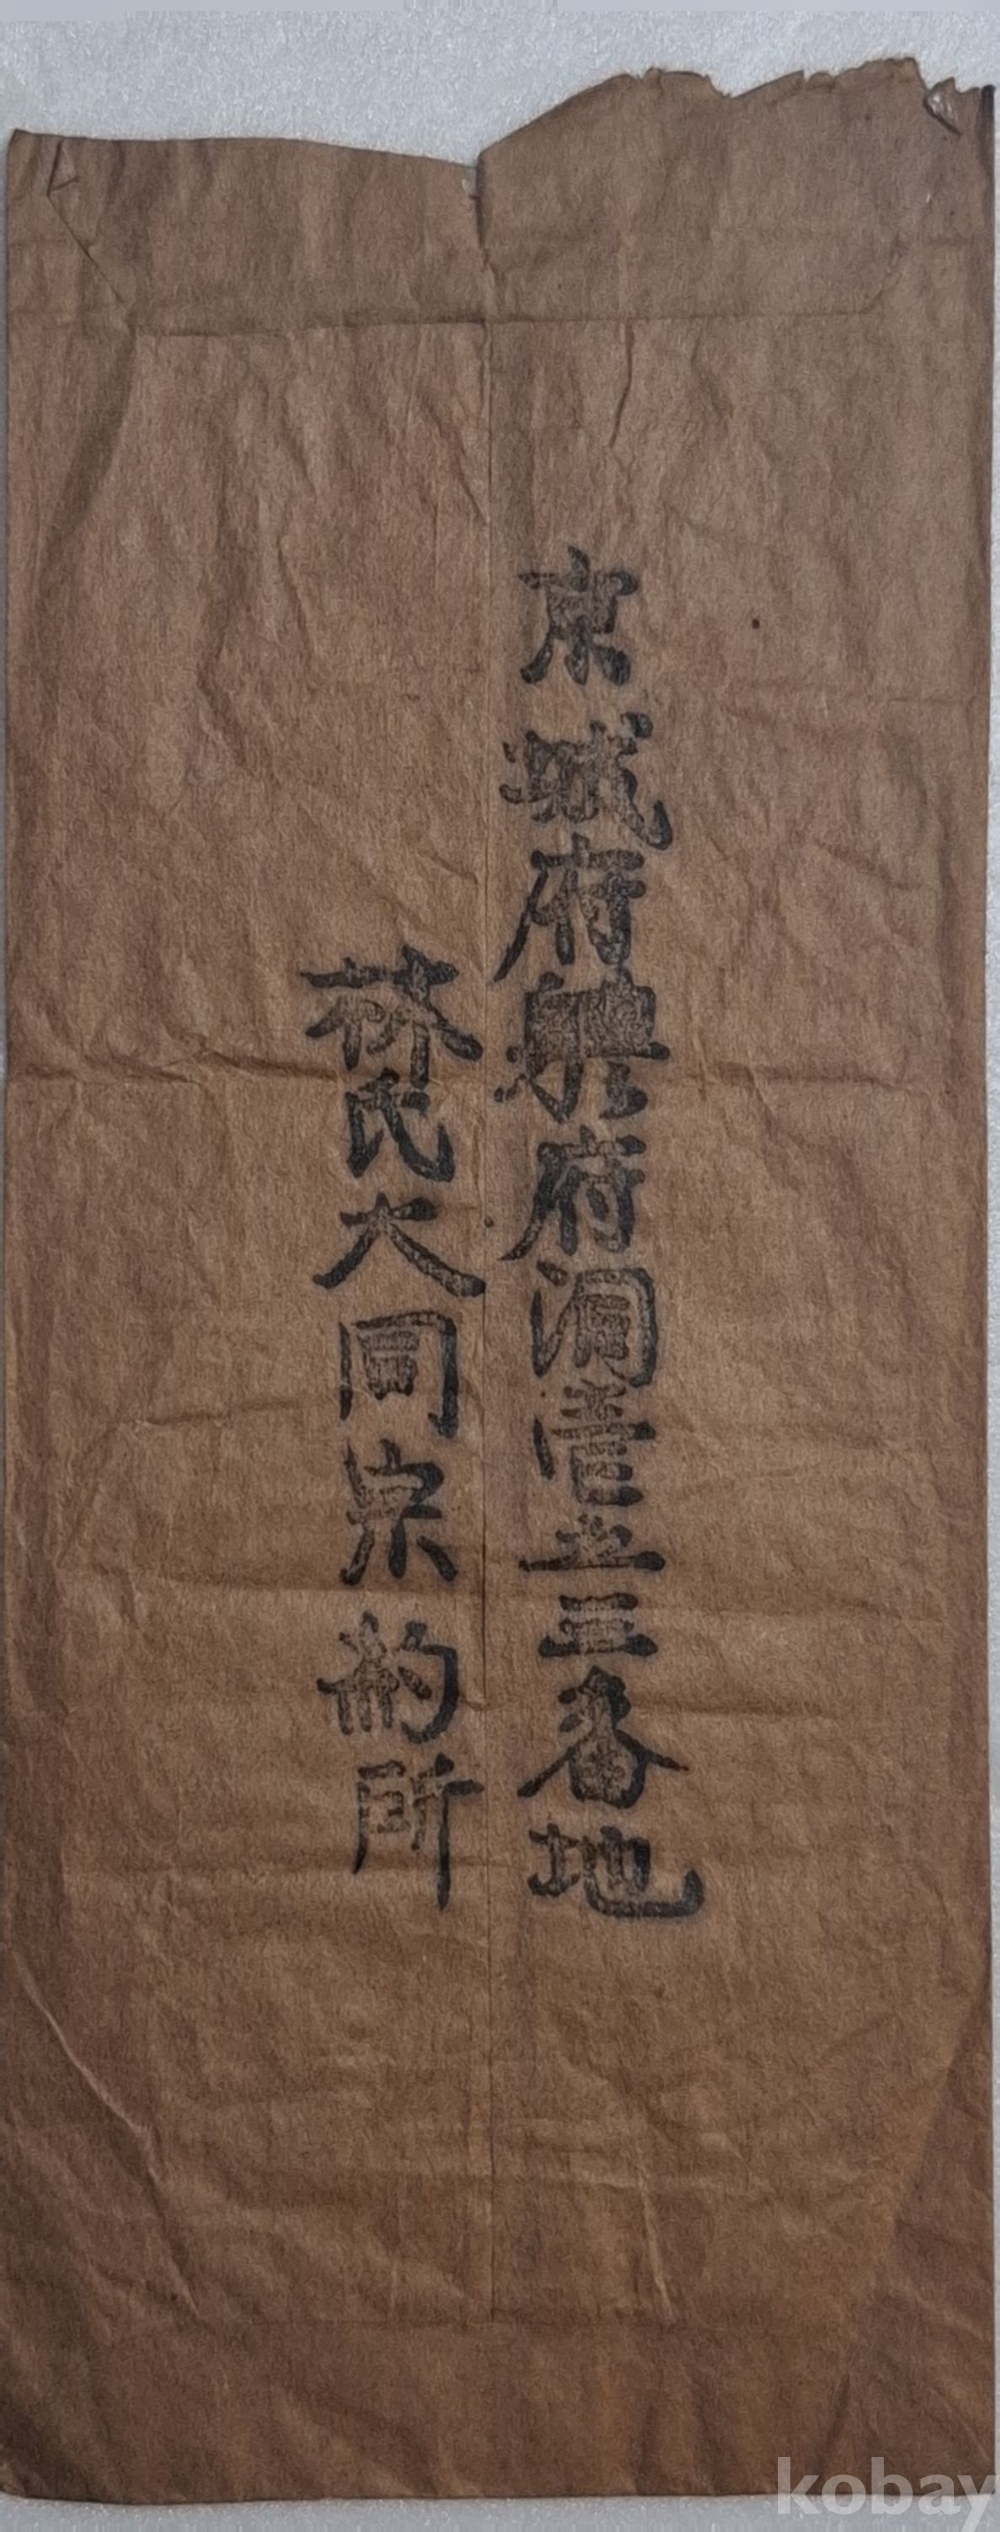 京城府軆府洞壹之三番地
林氏大同宗約所
kobay